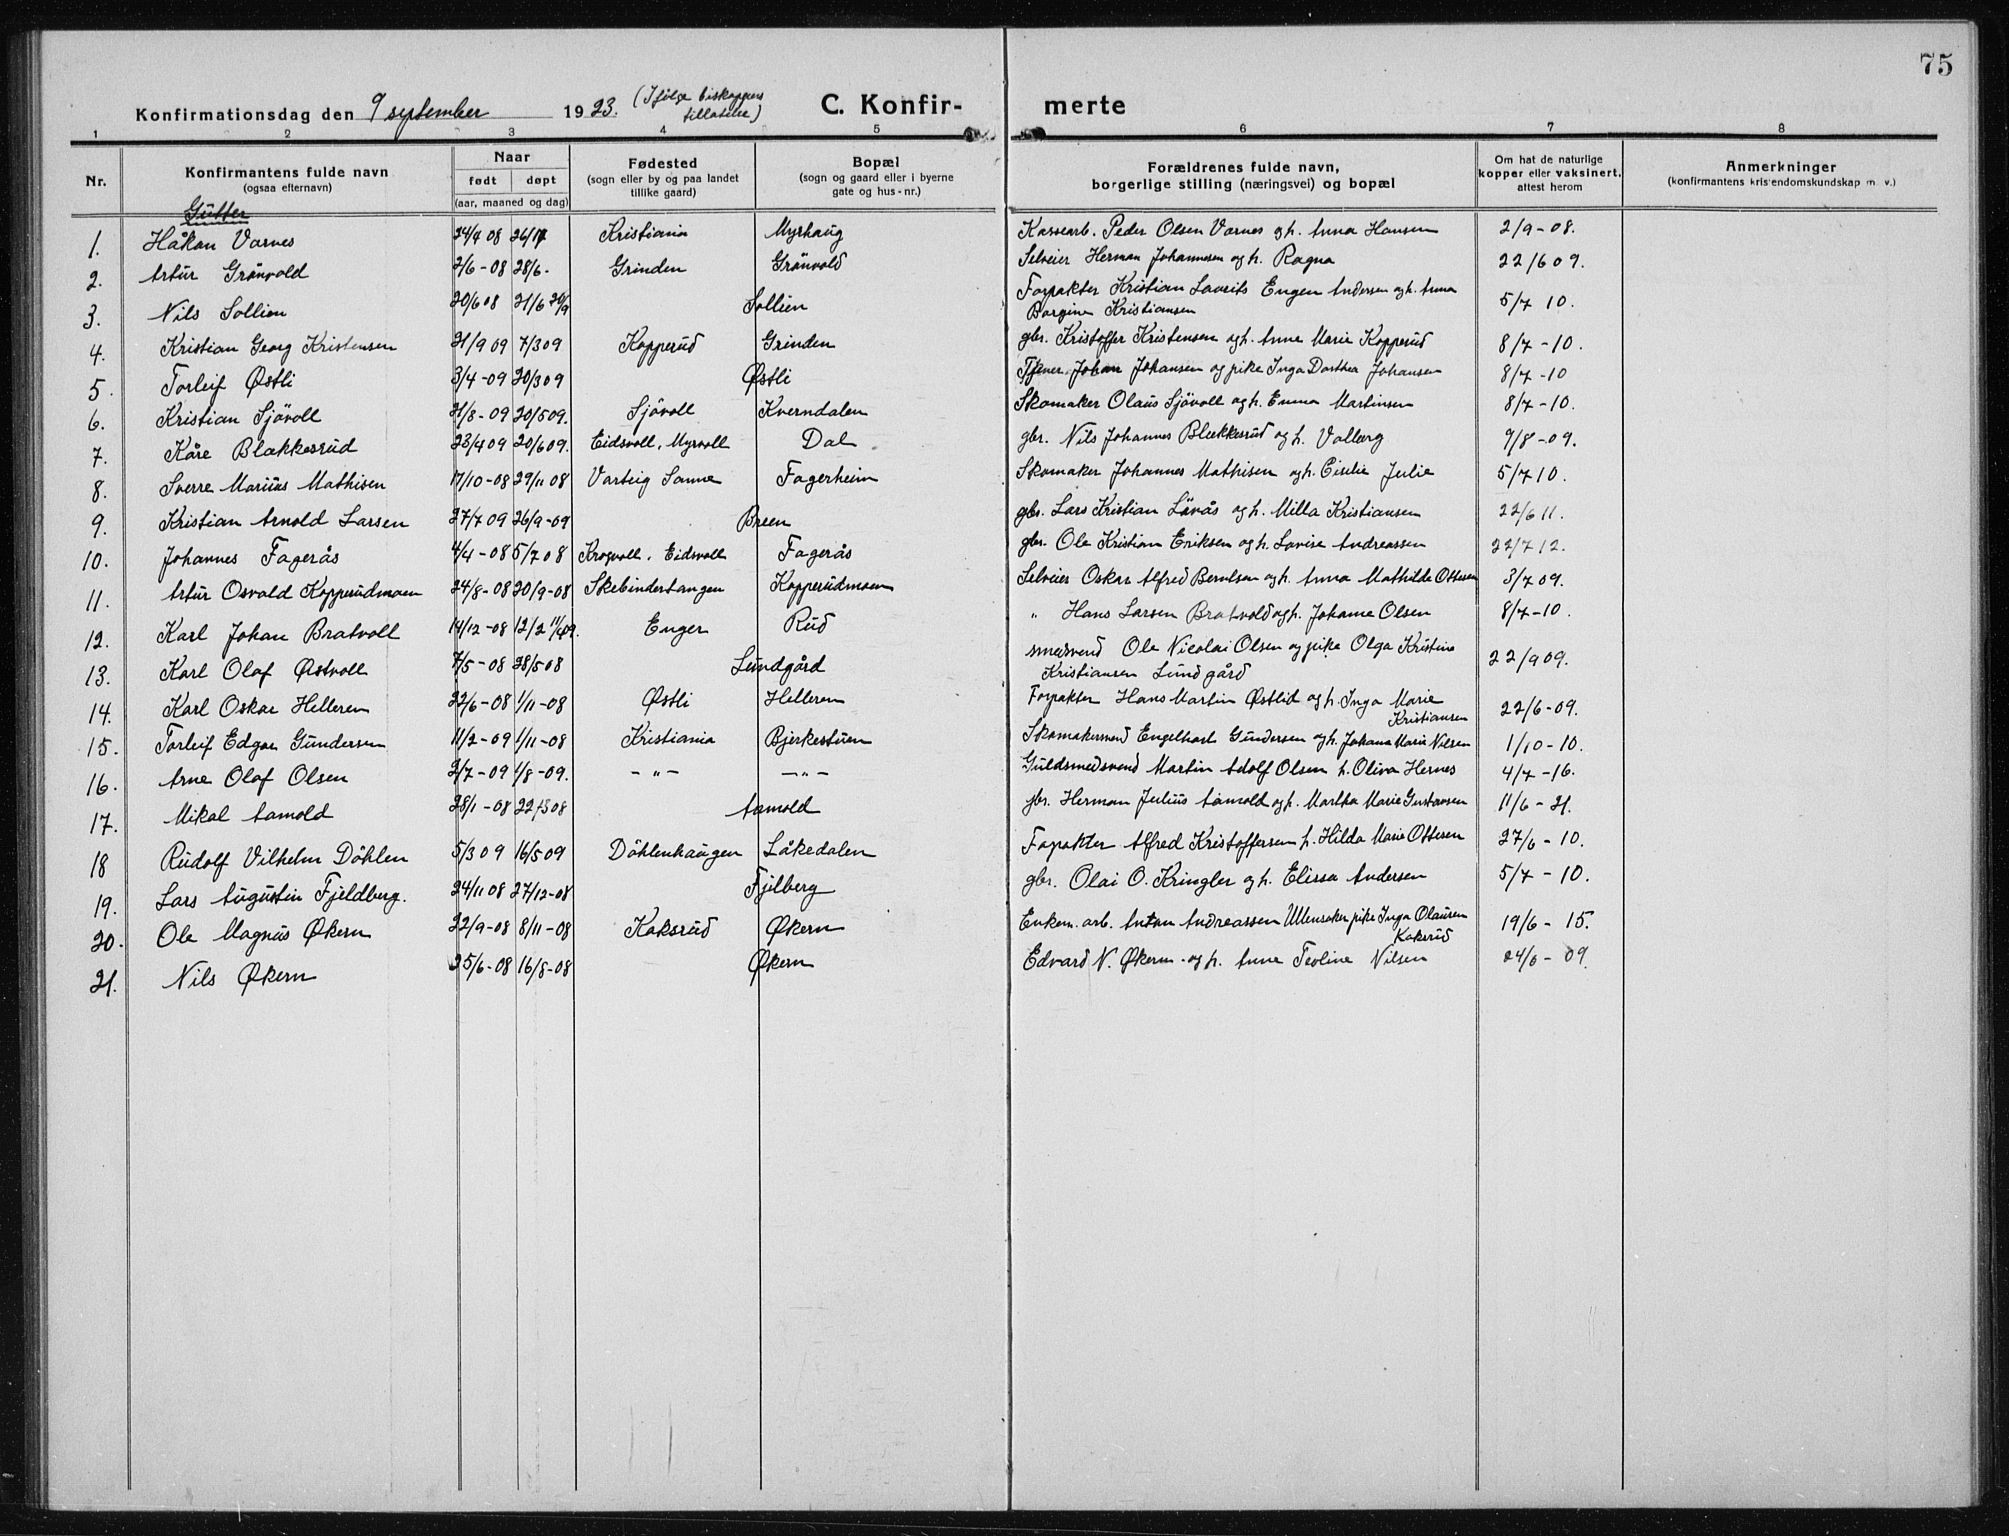 75
Konfirmationsdag den 9 september 1923. (Ifølge biskoppens tillatelse) C. Konfir- merte
1 2 3 4 5 6 7 8
Nr. Konfirmantens fulde navn (ogsaa efternavn) Naar født døpt (aar, maaned og dag) Fødested (sogn eller by og paa landet tillike gaard) Bopæl (sogn og gaard eller i byerne gate og hus-nr.) Forældrenes fulde navn, borgerlige stilling (næringsvei) og bopæl Om hat de naturlige kopper eller vaksinert. attest herom Anmerkninger (konfirmantens kristendomskundskap m. v.)
Gutter
1. Håkon Varnes 24/4 08 26/7 Kristiania Myrhaug Kassearb. Peder Olsen Varnes og h. Anna Hansen 2/9-08.
2. Artur Grönvold 2/6-08 28/6. Grinden Grönvold Selveier Herman Johannesen og h. Ragna 22/6 09.
3. Nils Sollien 20/6 08 21/6 20/9 Sollien Forpakter Kristian Laurits Engen Andersen og h. Anna
Borgine Kristiansen 5/7 10.
4. Kristian Georg Kristensen 21/9 09 7/3 09 Kopperud Grinden gbr. Kristoffer Kristensen og h. Anne Marie Kopperud 8/7-10.
5. Torleif Østli 3/4-09 20/3 09 Østli Tjener Johan Johansen og pike Inga Dorthea Johansen 8/7-10
6. Kristian Sjövoll 21/8-09 20/5 09. Sjövoll Kverndalen Skomaker Olaus Sjövoll og h. Emma Martinsen 8/7-10.
7. Kåre Blækkesrud 23/4 09 20/6 09. Eidsvoll, Myrvoll Dal gbr. Nils Johannes Blækkesrud og h. Valborg 9/8-09.
8. Sverre Marius Mathisen 17/10-08 29/11 08 Varteig Sanne Fagerheim Skomaker Johannes Mathisen og h. Eiselie Julie 5/7 10.
9. Kristian Arnold Larsen 27/7 09 26/9-09 Breen gbr. Lars Kristian Lövås og h. Milla Kristiansen 22/6 11.
10. Johannes Fagerås 4/4-08 5/7 08 Krogvoll, Eidsvoll Fagerås gbr. Ole Kristian Eriksen og h. Lovise Andreassen 22/7 12.
11. Artur Osvald Kopperudmoen 24/8-08 20/9-08 Skebindertangen Kopperudmoen Selveier Oskar Alfred Berntsen og h. Anna Mathilde Ottesen 3/7 09.
12. Karl Johan Bratvoll 14/12-08 12/2 11/4 09. Enger Rud " Hans Larsen Bratvold og h. Johanne Olsen 8/7-10.
13. Karl Olaf Østvoll 7/5-08 28/5 08 Lundgård smedsvend Ole Nicolai Olsen og pike Olga Kristine
Kristiansen Lundgård 22/9 09.
14. Karl Oskar Helleren 22/6-08 1/11-08 Østli Helleren Forpakter Hans Martin Østlid og h. Inga Marie
Kristiansen 22/6-09.
15. Torleif Edgar Gundersen 11/2-09 1/11-08 Kristiania Bjerkestuen Skomakersvend Engelhart Gundersen og h. Johana Marie Nilsen 1/10-10.
16. Arne Olaf Olsen 2/7-09 1/8-09. -"- -"- Guldsmedsvend Martin Adolf Olsen h. Oliva Hernes 4/7-16.
17. Mikal Aamold 28/1-08 22/3 08 Aamold gbr. Herman Julius Aamold og h. Martha Marie Gustavsen 11/6-21.
18 Rudolf Vilhelm Döhlen 5/3 09 16/5 09 Döhlenhaugen Låkedalen Forpakter Alfred Kristoffersen h. Hilda Marie Ottesen 27/6-10.
19. Lars Augustin Fjeldberg. 24/11 08 27/12-08 Fjelberg gbr. Olai O. Kringler og h. Elissa Andersen 5/7-10.
20. Ole Magnus Økern 22/9-08 8/11-08 Koksrud Økern Enkem. arb. Anton Andreassen Ullensaker pike Inga Olausen
Koksrud 19/6-15.
21. Nils Økern 25/6-08 16/8-08 Økern Edvard N. Økern og h. Anne Teoline Nilsen 24/6-09.